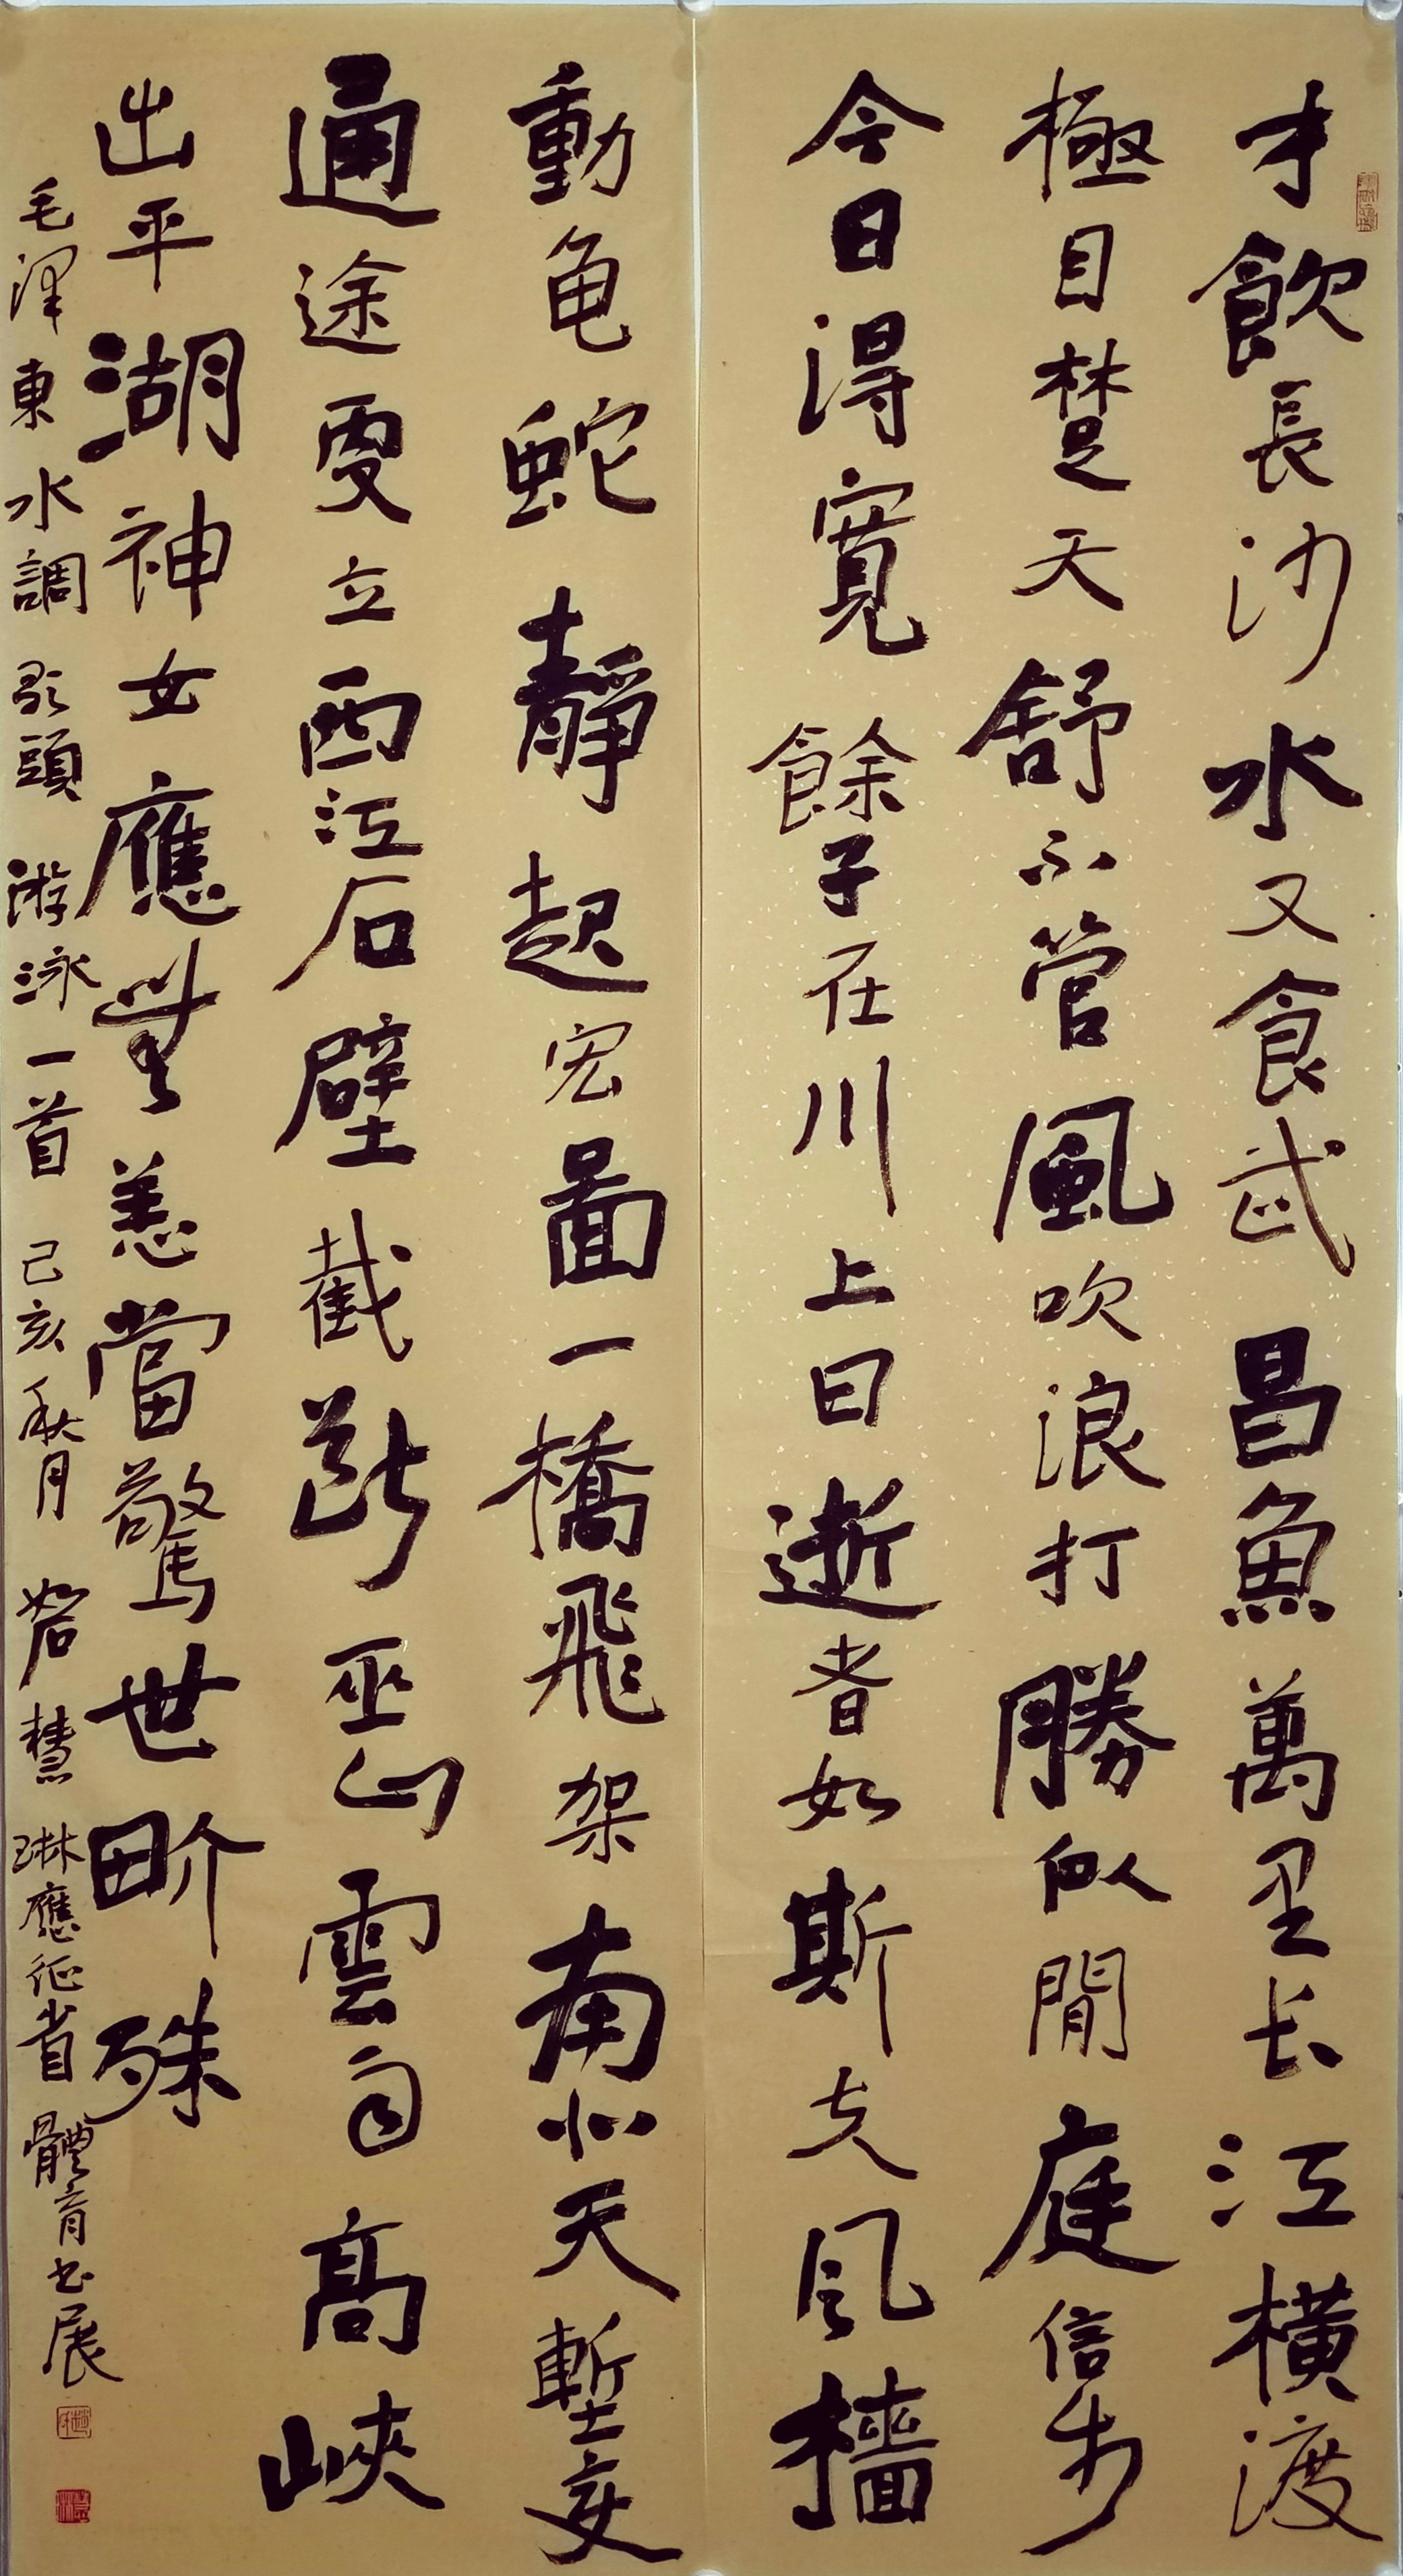 才飲長沙水又食武昌魚萬里长江橫渡
極目楚天舒不管風吹浪打勝似閒庭信步
今日得寬餘子在川上曰逝者如斯夫风檣
動龟蛇靜起宏圖一橋飛架南北天塹变
通途更立西江石壁截斷巫山雲雨高峽
出平湖神女應無恙當驚世畍殊
毛澤東水調歌頭游泳一首己亥秋月慧琳應征省體育书展